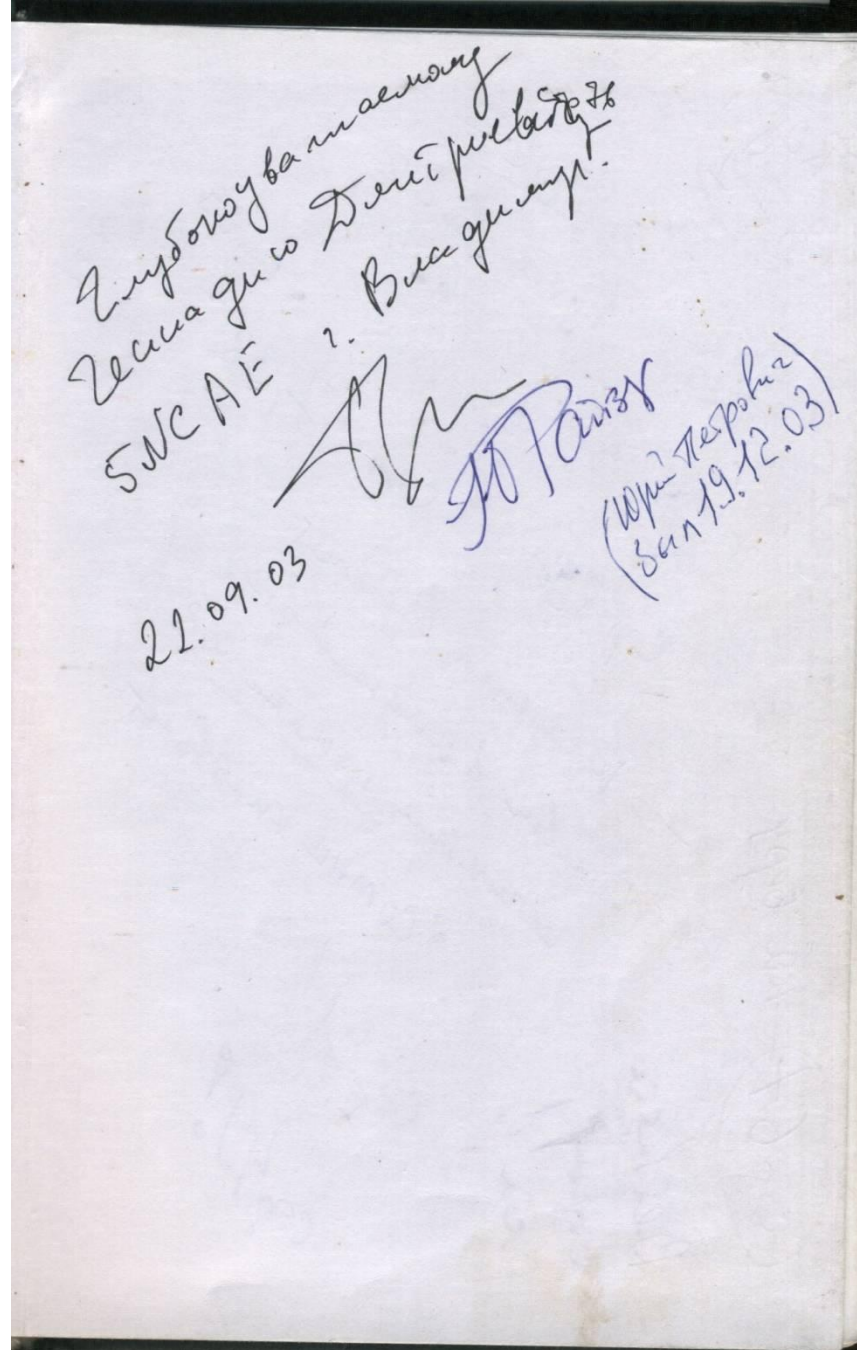 Глубокоуважаемому
Геннадию Дмитриевичу
г. Владимир.
Ю Райзер
(Юрий Петрович)
19.12.03)
21.09.03